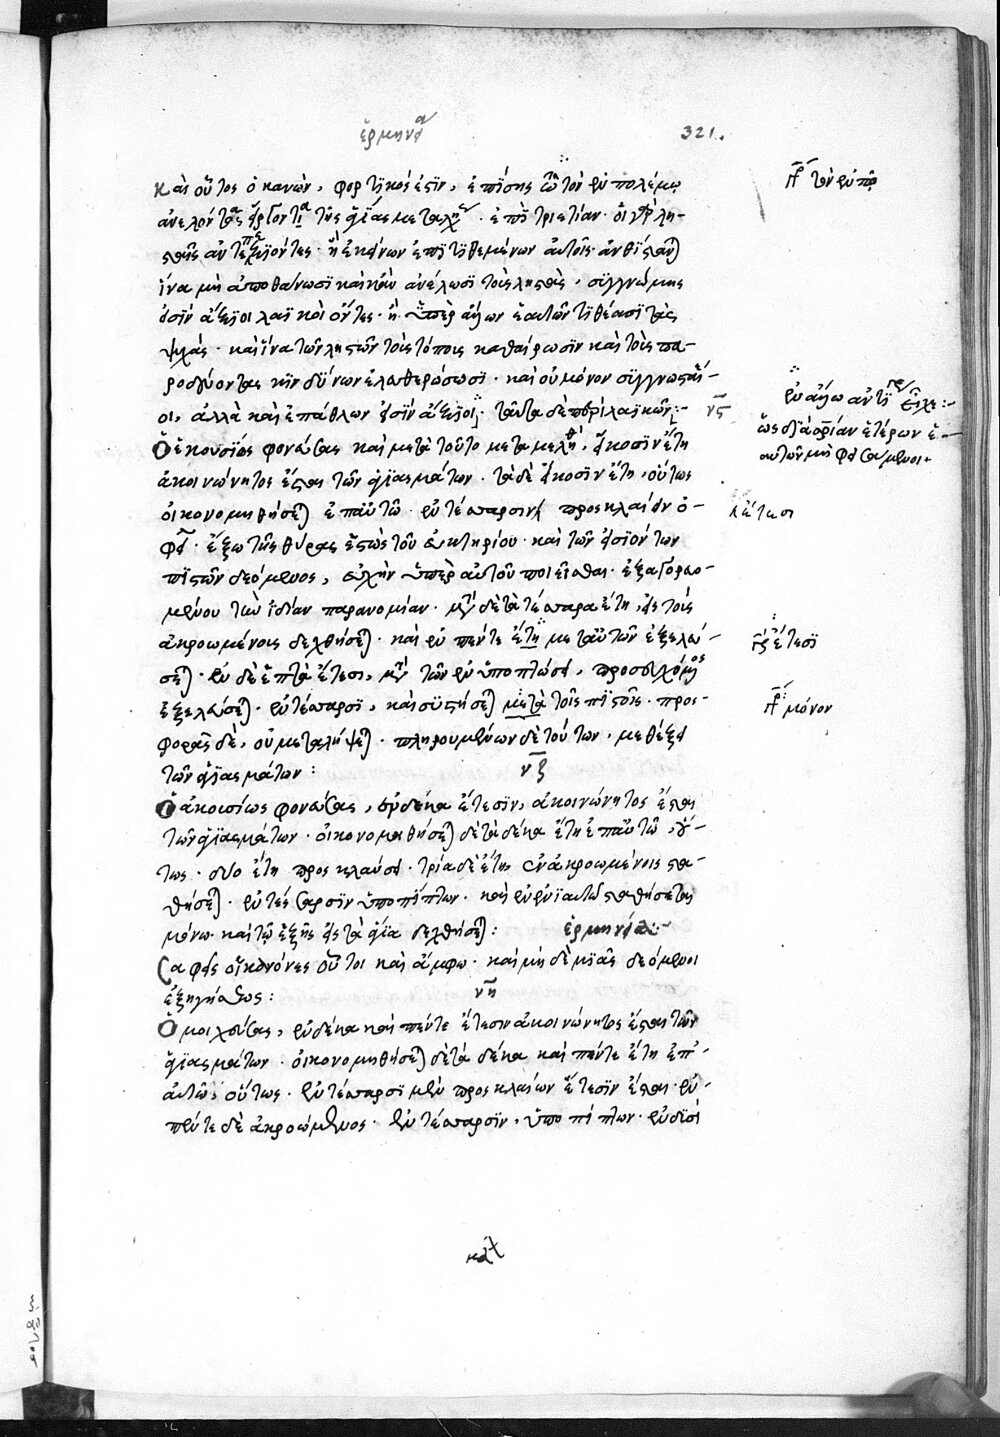 ἑρμηνεία
321.
καὶ οὗτος ὁ κανὼν, φορτικός ἐστὶν, ἐπίσης τὸν ἐν πολέμω
ἀνελόντας εἴργοντι τῆς ἁγίας μεταλήψεως ἐπὶ τριετίαν· οἱ
ἵνα μὴ ἀποθάνωσι κἀκεῖνοι ἀνέλωσι τοὺς ληστὰς· συγγνώμης
εἰσὶν ἄξιοι λαϊκοὶ ὄντες· ἢ ὑπὲρ ἄλλων ἑαυτῶν τιθέασι τὰς
ψυχάς· καὶ ἵνα τῶν ληστῶν τοὺς τόπους καθαίρωσιν καὶ τοὺς πα-
ροδεύοντας κινδύνων ἐλευθερώσωσι· καὶ οὐ μόνον συγγνωστέ-
οι, ἀλλὰ καὶ ἐπάθλων εἰσὶν ἄξιοι· ταῦτα δὲ περὶ λαϊκῶν:-
νς
Ὁ ἑκουσίως φονεύσας καὶ μετὰ τοῦτο μεταμεληθεὶς, εἴκοσιν ἔτη
ἀκοινώνητος ἔσται τῶν ἁγιασμάτων· τὰ δὲ εἴκοσιν ἔτη, οὕτως
οἰκονομηθήσεται ἐπ' αὐτῶ· ἐν τέσσαρσιν προσκλαίειν ὀ-
φείλει· ἔξω τῆς θύρας ἑστὼς τοῦ εὐκτηρίου· καὶ τῶν εἰσιόντων
πιστῶν δεόμενος, εὐχὴν ὑπὲρ αὐτοῦ ποιεῖσθαι· ἐξαγορευο-
μένου τὴν ἰδίαν παρανομίαν· μετὰ δὲ τὰ τέσσαρα ἔτη, εἰς τοὺς
ἀκροωμένους δεχθήσεται· καὶ ἐν πέντε ἔτη μετ' αὐτῶν ἐξελεύ-
σεται· ἐν δὲ ἑπτὰ ἔτεσι, μετὰ τῶν ἐν ὑποπτώσει, προσευχόμενος
ἐξελεύσεται· ἐν τέσσαρσι, καὶ συστήσεται μετὰ τοῖς πιστοῖς· προσ-
φορᾶς δὲ, οὐ μεταλήψεται· πληρουμένων δὲ τούτων, μεθέξει
τῶν ἁγιασμάτων:
νζ
Ὁ ἀκουσίως φονεύσας, ἐν δέκα ἔτεσιν, ἀκοινώνητος ἔσται
τῶν ἁγιασμάτων· οἰκονομηθήσεται δὲ τὰ δέκα ἔτη ἐπ' αὐτῶ, οὕ-
τως· δύο ἔτη προσκλαύσει· τρία δὲ ἔτη ἐν ἀκροωμένοις στα-
θήσεται· ἐν τέσσαρσιν ὑποπίπτων· καὶ ἐν ἐνιαυτῶ σταθήσεται
μόνω· καὶ τῶ ἑξῆς εἰς τὰ ἅγια δεχθήσεται:
ἑρμηνεία:-
Σαφεῖς οἱ κανόνες οὗτοι καὶ ἄμφω· καὶ μηδὲ μιᾶς δεόμενοι
ἐξηγήσεως:
νη
Ὁ μοιχεύσας, ἐν δέκα καὶ πέντε ἔτεσιν ἀκοινώνητος ἔσται τῶν
ἁγιασμάτων· οἰκονομηθήσεται δὲ τὰ δέκα καὶ πέντε ἔτη ἐπ'
αὐτῶ, οὕτως· ἐν τέσσαρσι μὲν προσκλαίων ἔτεσιν ἔσται· ἐν
πέντε δὲ ἀκροώμενος· ἐν τέσσαρσιν, ὑποπίπτων· ἐν δυσὶ
τὸν ἐν
ἐν ἄλλω ἀντιγράφῳ εἶχε:-
ἑτέρων ἑ-
αυτῶν μὴ φεισάμενοι·
ἔτεσι
ἔτεσι
μόνον